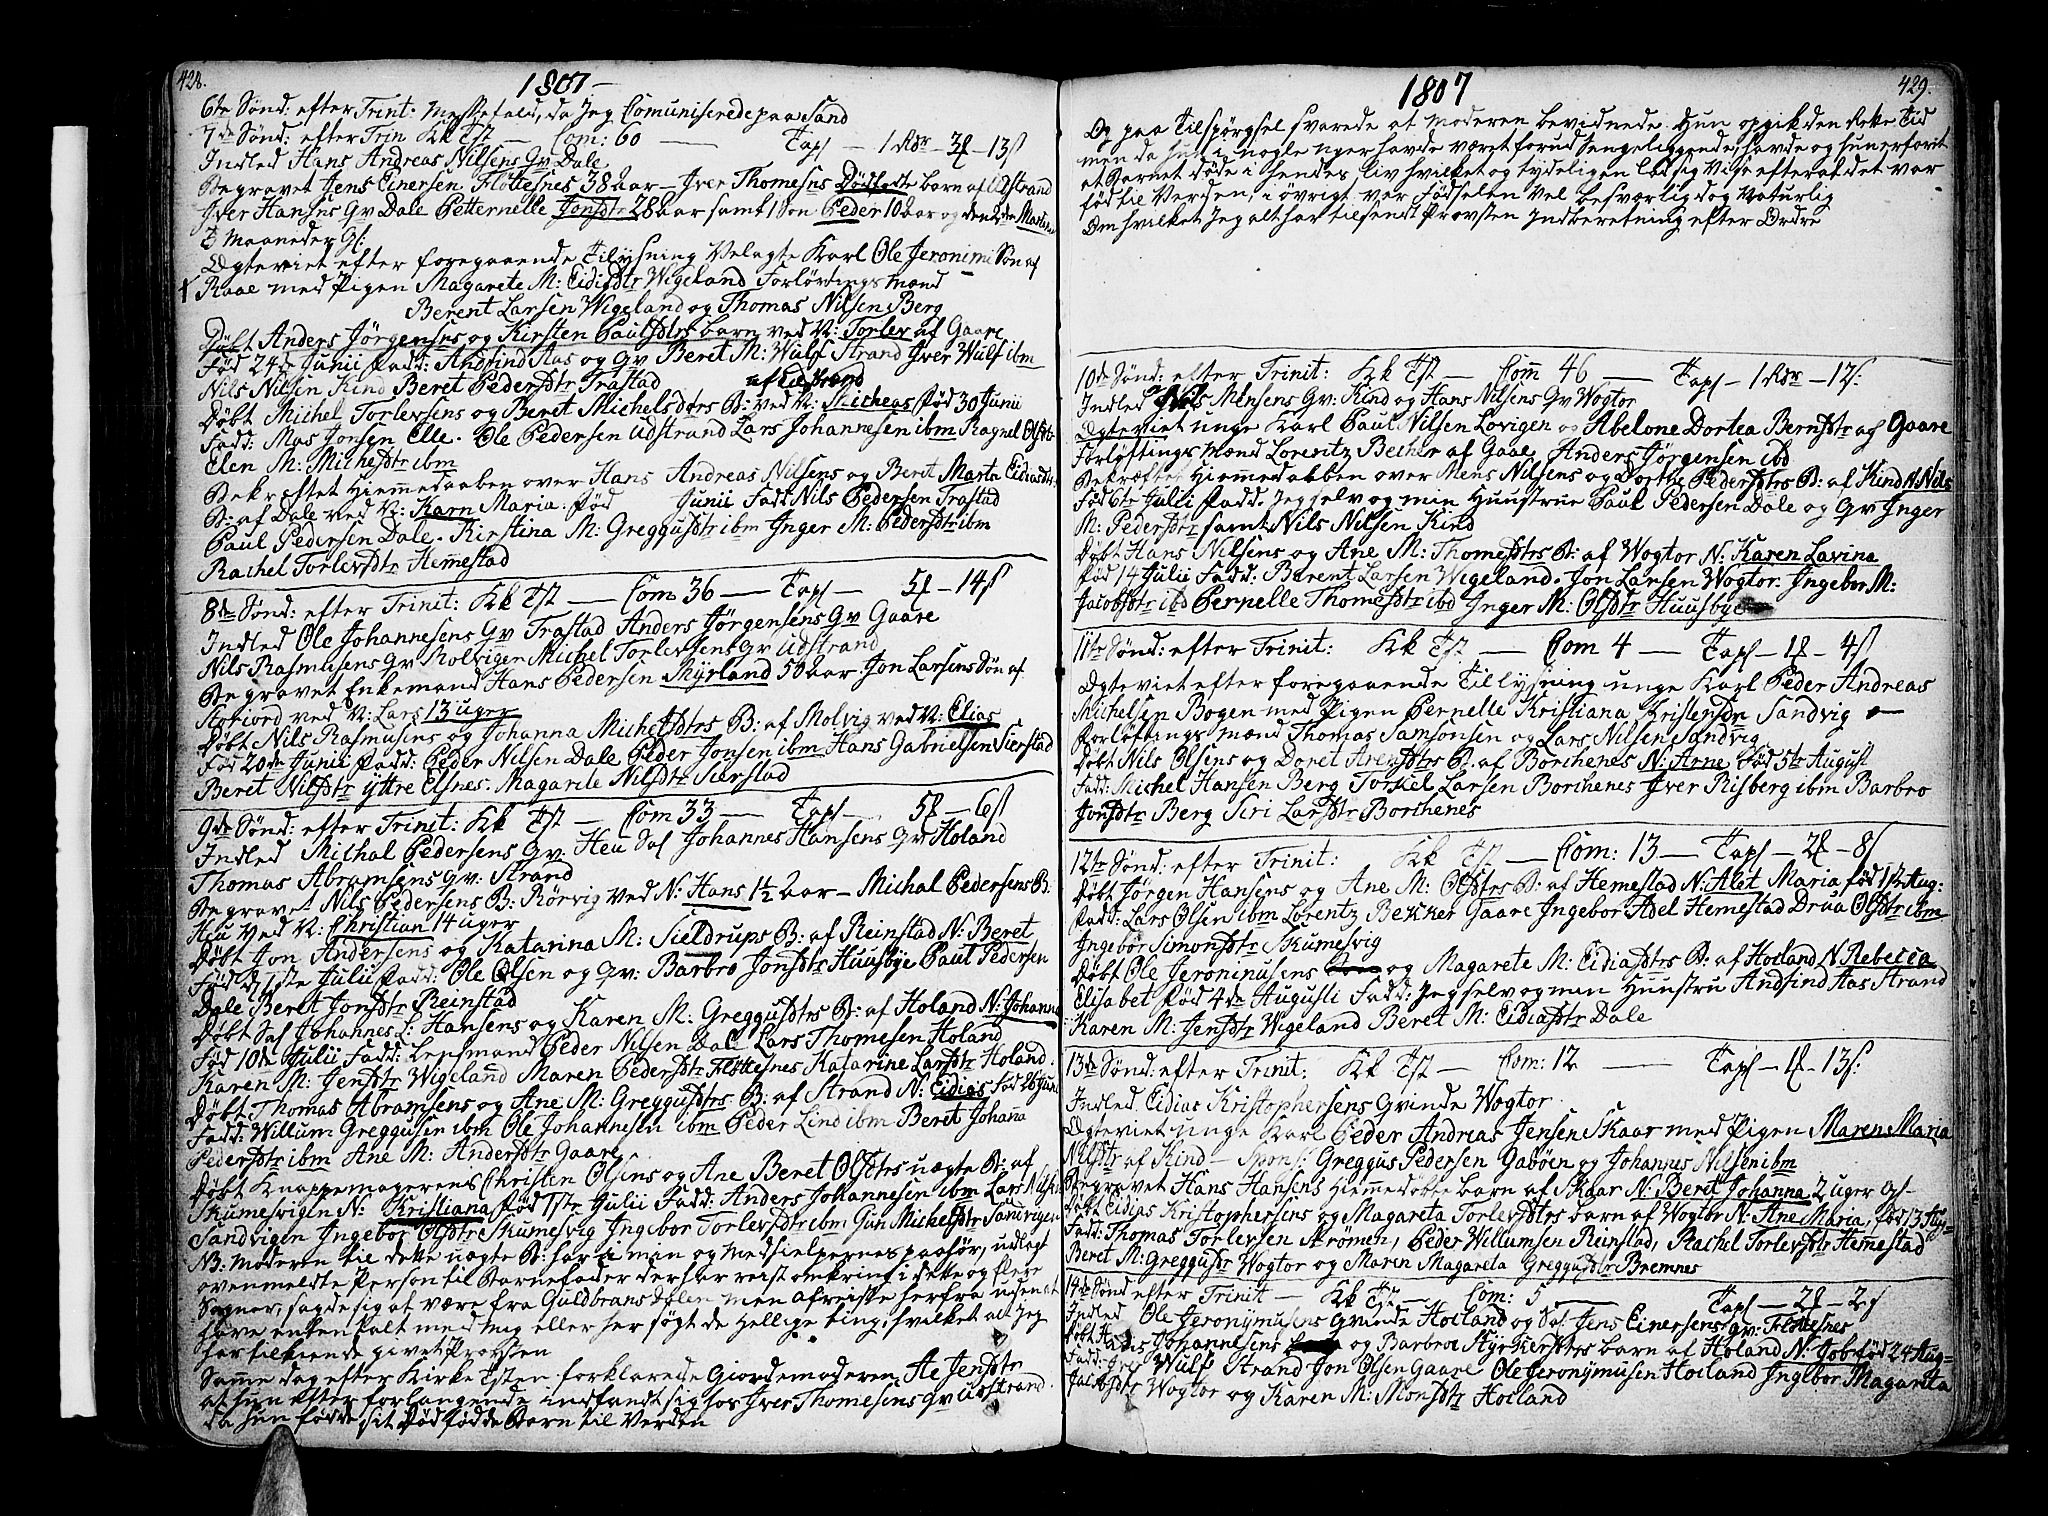 428.
1807
6te Sønd: efter Trint: Messefald, da Jeg Comuniserede paa Sand
7de Sønd: efter Trin Kk Tst — Com: 60 — Tapl — 1 Rdr 3 — 13 s
Indled Hans Andreas Nilsens Qv Dale
Begravet Jens Einersen Fløttesnes 38 aar — Iver Thomesns Dødfødte barn af Udstrand
Iver Hansns Qv Dale Petternelle Jonsdtr 28 aar samt 1 Søn Peder 10 aar og den 2den
Maaneder Gl:
Ægteviet efter foregaaende Tilysning Velagte Karl Ole Jeronimi Søn af
1 Raae med Pigen Magarete M: Eidisdtr Wigeland Forlørtings Mænd
Berent Larsen Wigeland og Thomas Nilsen Berg
Døbt Anders Jörgensns og Kirsten Paulsdtrs barn ved N: Torlev af Gaare
Fød 24de Junii Fadd: Andfind Aas og Qv Beret M: Wulf Strand Iver Wulf ibm
Nils Nilsen Kind Beret Pedersdtr Trastad
af Udstrand
Døbt Michel Torlevsens og Beret Michelsdtrs B: ved N: Micheas Fød 30 Junii
Fadd: Mas Jonsen Elle. Ole Pedersen Udstrand Lars Johannesen ibm Ragnel Olsdtr
Elen M: Michelsdtr ibm
Bekreftet Hiemmedaaben over Hans Andreas Nilsens og Berit Marta Eidiasdtrs
B: af Dale ved N: Karn Maria. Fød Junii Fadd: Nils Pedersen Trastad
Paul Pedersen Dale. Kirstina M: Greggusdtr ibm Inger M: Pedersdtr ibm
Rachel Torlevsdtr Hemmestad
8de Sønd: efter Trinit: Kk Tst — Com 36 — Tapl — 5 — 14 s
Indled Ole Johannesens Qv Trastad Anders Jörgensens Qv Gaare
Nils Rasmusens Qv Rolviger Michel Torlevsens Qv Udstrand
Begravet Enkemand Hans Pedersen Myrland 50 aar. Jon Larsens Søn af
ved N: Lars 13 uger
Døbt Nils Rasmusens og Johanna Michelsdtrs B: af Molvig ved N: Elias
Fød 20de Junii Fadd: Peder Nilsen Dale Peder Jonsen ibm Hans Gabrielsen Sierstad
Beret Nilsdtr yttre Elsnes. Magarete Nilsdtr Sierstad
9de Sønd: efter Trinit: Kk Tst — Com 33 — Tapl — 5 — 6 s
Indled Michal Pedersens Qv: Heu Sal Johannes Hansens Qv Holand
Thomas Abramsens Qv: Strand
Begravet Nils Pedersens B: Rørvig ved N: Hans 1½ aar — Michal Pedersens B:
Heu ved N: Christian 14 uger
Døbt Jon Andersens og Katarina M: Sieldrups B: af Reinstad N: Beret
Fød 1ste Julii Fadd: Ole Olsen og Qv: Barbro Jonsdtr Huusbye Paul Pedersen
Dale Beret Jonsdtr Reinstad
Døbt Sal Johannes L: Hansens og Karen M: Greggusdtrs B: af Holand N: Johanna
Fød 10de Julii Fadd: Lensmand Peder Nilsen Dal Lars Thomesen Holand
Karen M: Jensdtr Wigeland Maren Pedersdtr Fløttesnes Katarine Larsdtr Holand
Døbt Thomas Abramsens og Ane M: Greggusdtrs B: af Strand N: Eidias Fød 26 Junii
Fadd: Willum Greggusen ibm Ole Johannesen ibm Peder Lind ibm Beret Johanna
Pedersdtr ibm Ane M: Andersdtr Gaare
Døbt Knappemagerens Christen Olsens og Ane Beret Olsdtrs uægte B: af
Skumesvigen N: Kristiana Fød 1ste Julii Fadd: Anders Johannesen ibm Lars Nilsen
Sandvigen Ingebor Olsdtr Skumesvig Ingebor Torlevsdtr ibm Gun Michelsdtr Sandvigen
NB: Moderen til dette uægte B: har a man og Medhielpernes paahør, udlagt
ovenmeldte Person til Barnefader der har reist omkring i dette og flere
Sogner, sagde sig at være fra Guldbrans Dalen men afreiste herfra uden at
have enten talt med mig eller her søgt de Hellige ting, hvilket alt Jeg
har tilkiende givet Provsen
Samme dag efter Kirke Tsten forklarede Giordemoderen Ae Jensdtr
at hun efter forlangende indfandt sig hos Iver Thomesens Qv Udstrand.
da hun fødde sit Dødfødde Barn til Verden
429.
1807
Og paa Tilspörgsel svarede at Moderen bevidnede Hun opgik den Rette Tid
men da hun i nogle uger havde været forud sengeliggende, havde og hun erforit
at Barnet døde i hendes liv hvilket og tydeligen lod sig vise efter at det var
fød til Verden, i øvrigt var Fødselen vel besværlig dog Naturlig
Om hvilket Jeg alt har tilsendt Provsten Indberetning efter Ordre
10de Sønd: efter Trinit: Kk Tst — Com 46 — Tapl — 1 Rdr — 12 s.
Indled Nils Mensens Qv: Kind og Hans Nilsens Qv Wogtor
Ægteviet unge Karl Paul Nilsen Lovigen og Abelone Dortea Bernsdtr af Gaare
Forløftings Mænd Lorentz Becher af Gaae, Anders Jörgensen ibd
Bekreftet Hiemmedaaben over Mens Nilsens og Dorthe Pedersdtrs B: af Kind N: Nils
Fød 6te Julii Fadd: Jeg selv og min Huustrue Paul Pedersen Dale og Qv Inger
M: Pedersdtr samt Nils Nilsen Kind
Døbt Hans Nilsens og Ane M: Thomesdtrs B: af Wogtor N: Karen Lavina
Fød 14 Julii Fadd: Berent Larsen Wigeland. Jon Larsen Wogtor. Ingebor M:
Jacobsdtr ibd Pernelle Thomesdtr ibd Inger M: Olsdtr Huusbye
11te Sønd: efter Trinit: Kk Tst — Com 4 — Tapl — 1 — 4 s
Ægteviet efter foregaaende Tillysning unge Karl Peder Andreas
Michelsen Bogen med Pigen Pernelle Kristiana Kristensdr Sandvig
Forløftings Mænd Thomas Samsonsen og Lars Nilsen Sandvig
Døbt Nils Olsens og Doret Arensdtrs B: af Borchenes N: Arne Fød 5te August
Fadd: Michel Hansen Berg Torkel Larsen Borchenes Iver Risberg ibm Barbro
Jonsdtr Berg Siri Larsdtr Borchenes
12te Sønd: efter Trinit: Kk Tst — Com: 13 — Tapl — 2 — 8 s
Døbt Jörgen Hansens og Ane M: Olsdtrs B: af Hemestad N: Alet Maria fød 1ste Aug:
Fadd: Lars Olsen ibm Lorentz Bekker Gaare Ingebor Adel Hemestad Drua Olsdtr ibm
Ingebor Simonsdtr Skumesvig
Døbt Ole Jeronimusens og Magarete M: Eidiasdtrs B: af Holand N Rebecca
Elisabet Fød 4de Augusti Fadd: Jeg selv og min Huustru Andfind Aas Strand
Karen M: Jensdtr Wigeland Beret M: Eidiasdtr Dale
13de Sønd: efter Trinit: Kk Tst — Com: 12 — Tapl — 1 — 13 s.
Indled. Eidias Kristophersens Qvinde Wogtor
Ægteviet unge Karl Peder Andreas Jensen Skaar med Pigen Maren Maria
Nilsdtr af Kind — Spons: Greggus Pedersen Gabøen og Johannes Nilsen ibm
Begravet Hans Hansens Hiemmedøbte barn af Skaar N: Beret Johanna 2 uger Gl —
Døbt Eidias Kristophersens og Magareta Torlevsdtrs barn af Wogtor N: Ane Maria, fød 13 Aug=
Fadd: Thomas Torlevsen Strömen, Peder Willumsen Reinstad, Rachel Torlevsdtr Hemmestad
Beret M: Greggusdtr Wogtor og Maren Magareta Greggusdtr Bremnes
14de Sønd efter Trinit — Kk Tst — Com: 5 — Tapl — 2 — 2 s
Indled Ole Jeronymusens Qvinde Holland og Sal: Jens Einersens Qv: Fløttesnes
Døbt Johannesens og Barbroe Styrkersdtrs barn af Holand N: Job fød 24 Aug=
Fadd: Iver Wulf Strand Jon Olsen Gaare Ole Jeronymusen Holland Ingebor Magareta
Jacobsdtr Wogtor og Karen M: Monsdtr Holland